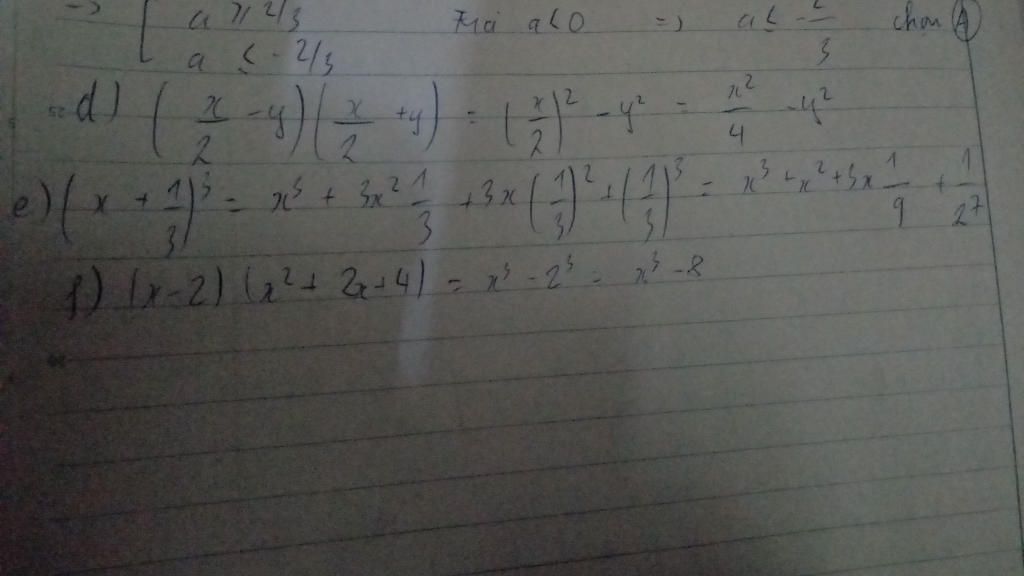 => [ a ≥ 2/3 a < 0 => a ≤ -2/3 chọn A
a ≤ -2/3
d) (x/2 - y)(x/2 + y) = (x/2)² - y² = x²/4 - y²
e) (x + 1/3)³ = x³ + 3x² 1/3 + 3x(1/3)² + (1/3)³ = x³ + x² + 3x 1/9 + 1/27
f) (x - 2)(x² + 2x + 4) = x³ - 2³ = x³ - 8